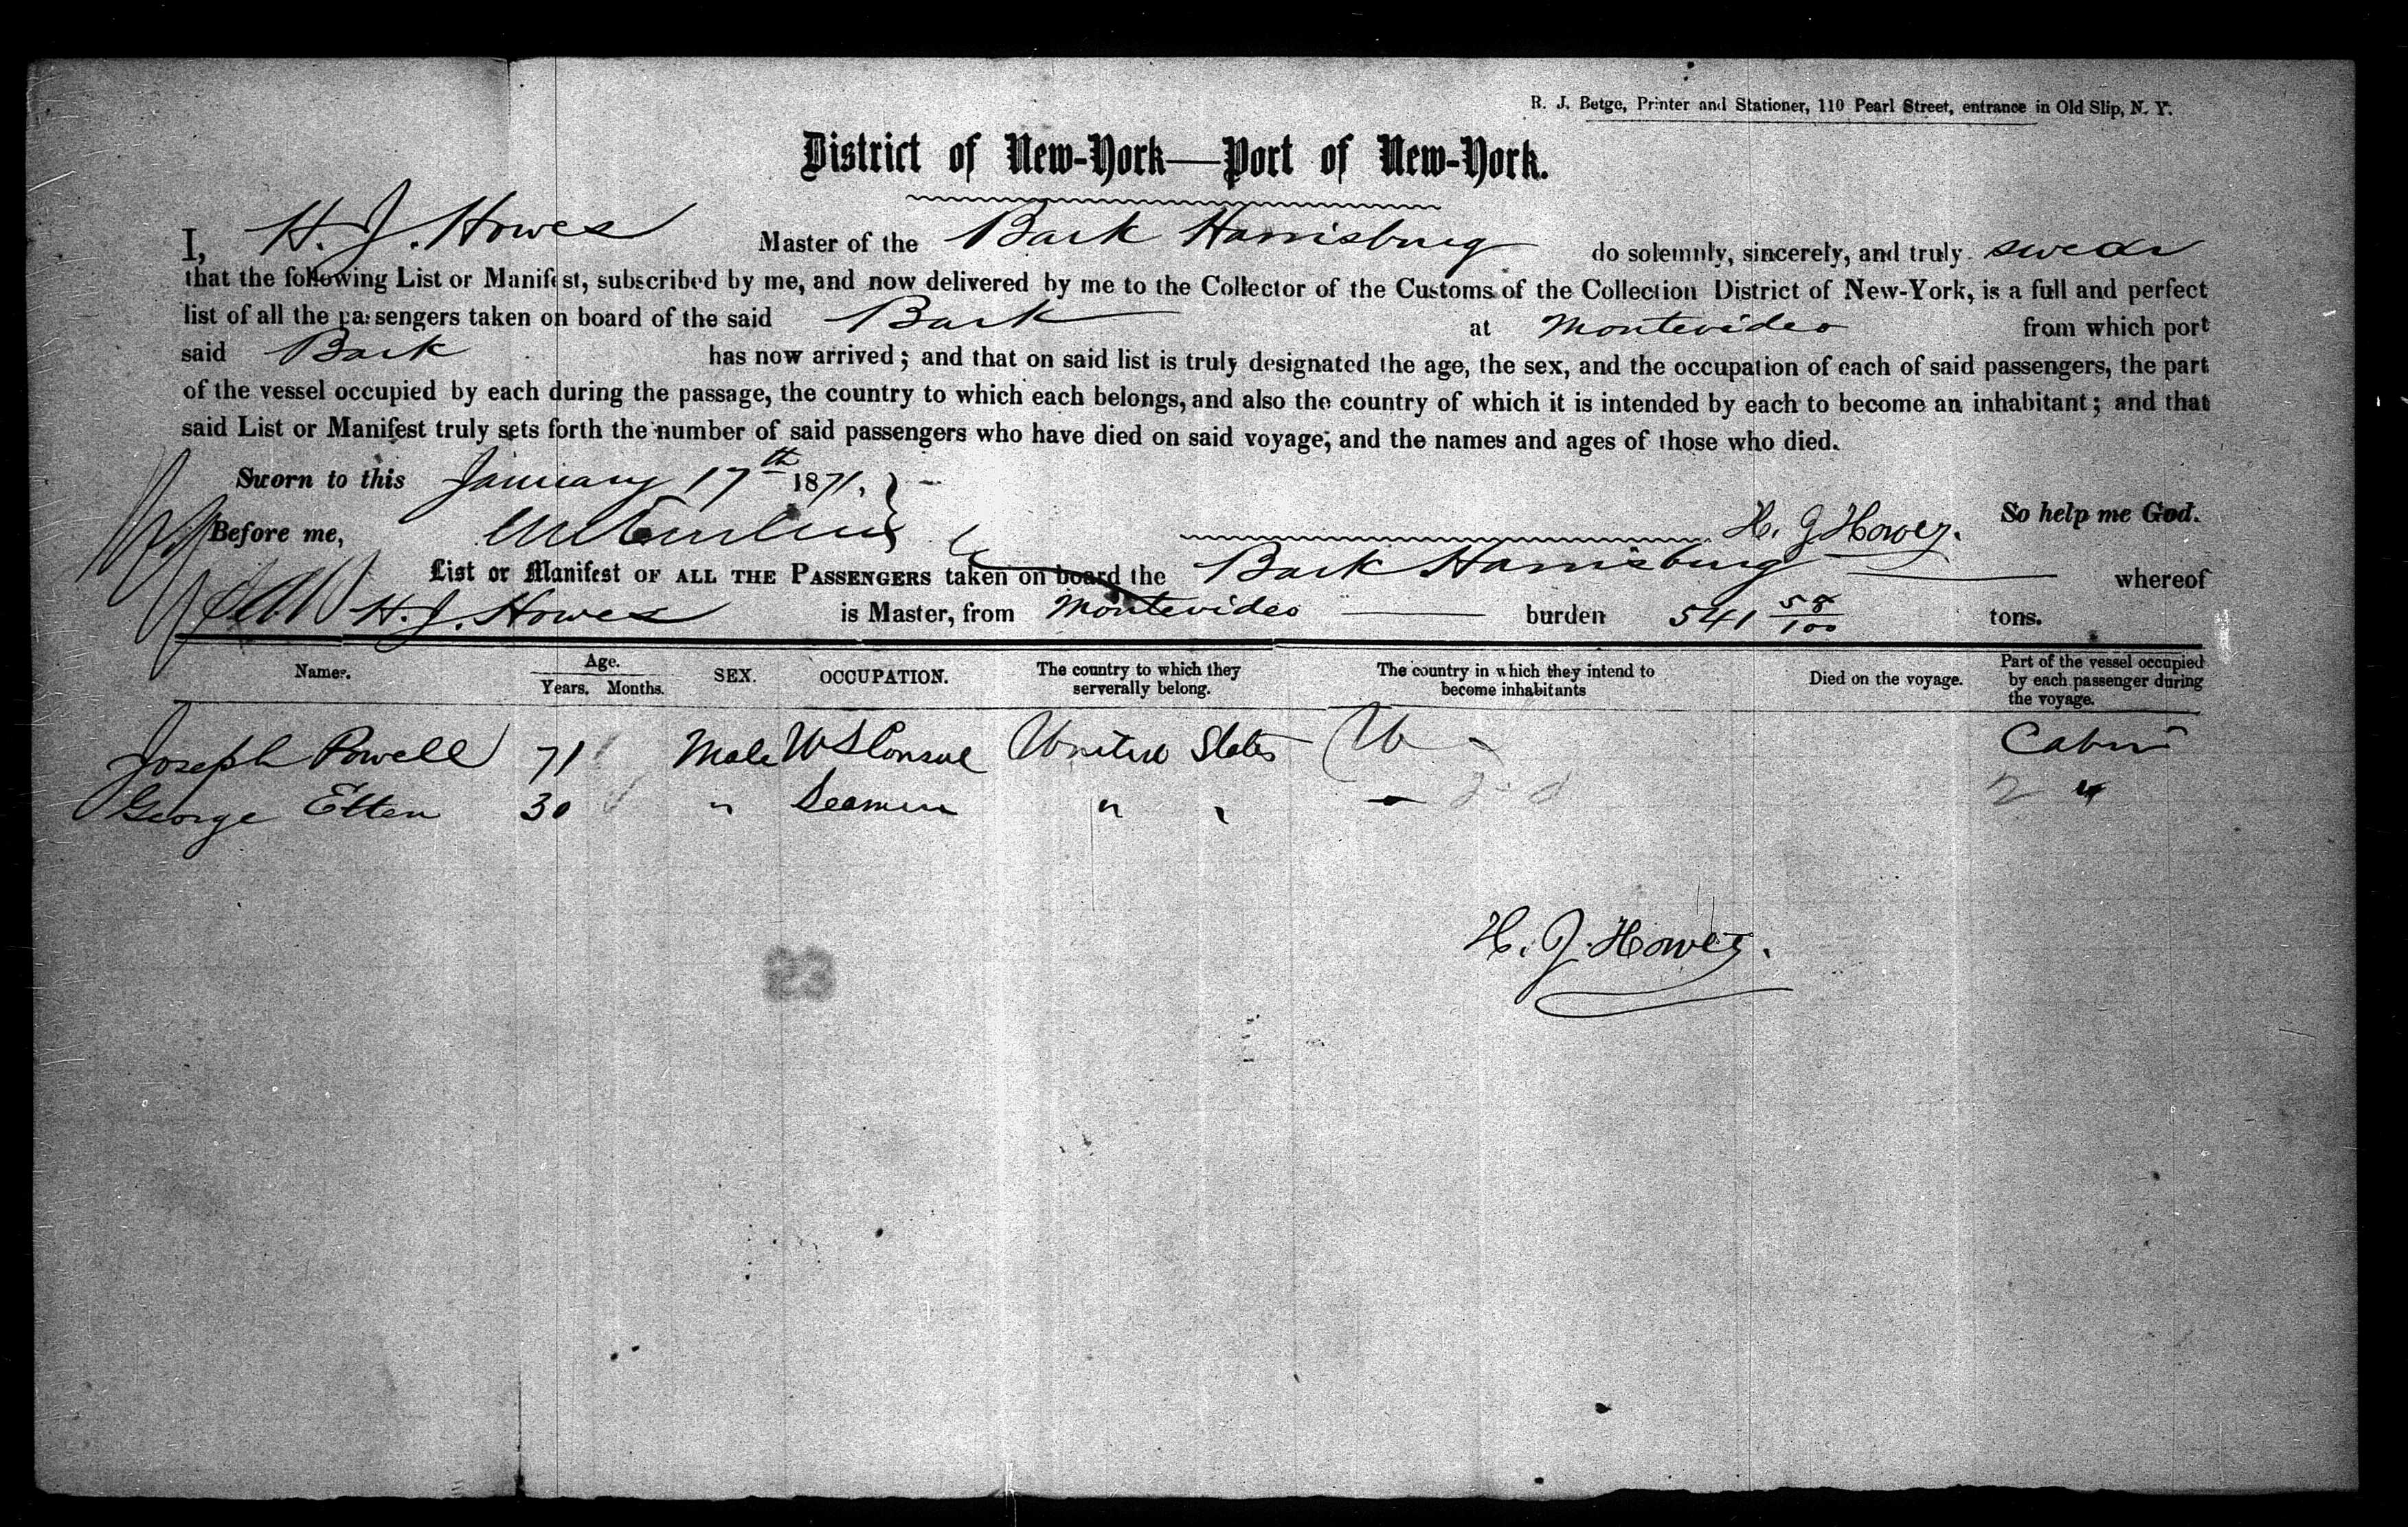 R. J. Betge, Printer and Stationer, 110 Pearl Street, entrance in Old Slip, N. Y.
District of New-York—Port of New-York.
I, H. J. Howes Master of the Bark Harrisburg do solemnly, sincerely, and truly swear
that the following List or Manifest, subscribed by me, and now delivered by me to the Collector of the Customs of the Collection District of New-York, is a full and perfect
list of all the passengers taken on board of the said Bark at Montevideo from which port
said Bark has now arrived; and that on said list is truly designated the age, the sex, and the occupation of each of said passengers, the part
of the vessel occupied by each during the passage, the country to which each belongs, and also the country of which it is intended by each to become an inhabitant; and that
said List or Manifest truly sets forth the number of said passengers who have died on said voyage, and the names and ages of those who died.
Sworn to this January 17th 1871. }
So help me God.
Before me, H. J. Howes.
List or Manifest OF ALL THE PASSENGERS taken on board the Bark Harrisburg whereof
H. J. Howes is Master, from Montevideo burden 541 58/100 tons.
Names. Age. Years. Months. SEX. OCCUPATION. The country to which they serverally belong. The country in which they intend to become inhabitants Died on the voyage. Part of the vessel occupied by each passenger during the voyage.
Joseph Powell 71 Male US Consul United States U Cabin
George Etten 30 " Seaman " " 2 "
H. J. Howes.
53